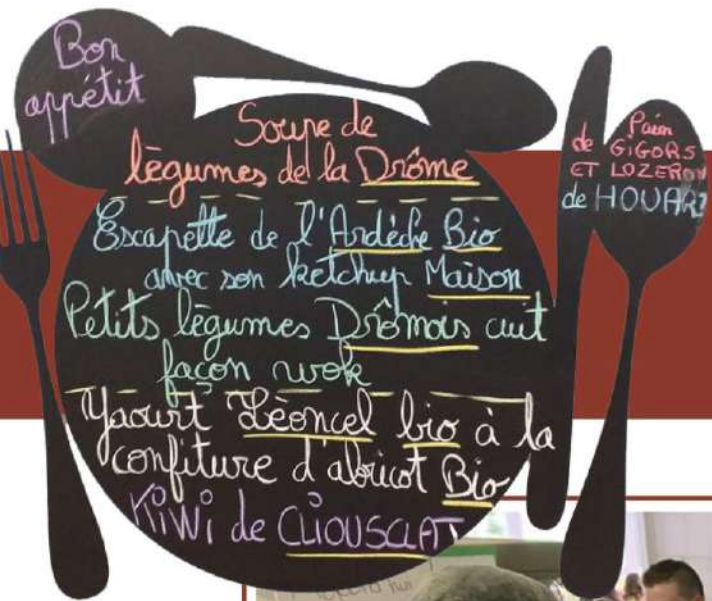 Bon
appétit
Soupe de
légumes de la Drôme
Escapette de l'Ardèche Bio
avec son ketchup Maison
Petits légumes Drômois cuit
façon wok
Yaourt Léoncel bio à la
confiture d'abricot Bio
Kiwi de CLIOUSCLAT
Pain
de GIGORS
ET LOZERON
de HOUARI